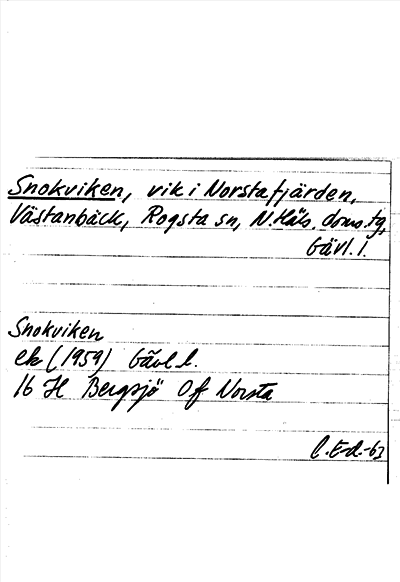 Snokviken, vik i Norstafjärden,
Västanbäck, Rogsta sn, N. Häls. doms. tg,
Gävl. l.
Snokviken
ek (1959) Gävl l.
16 H Bergsjö Of Norsta
C. E-d.-63